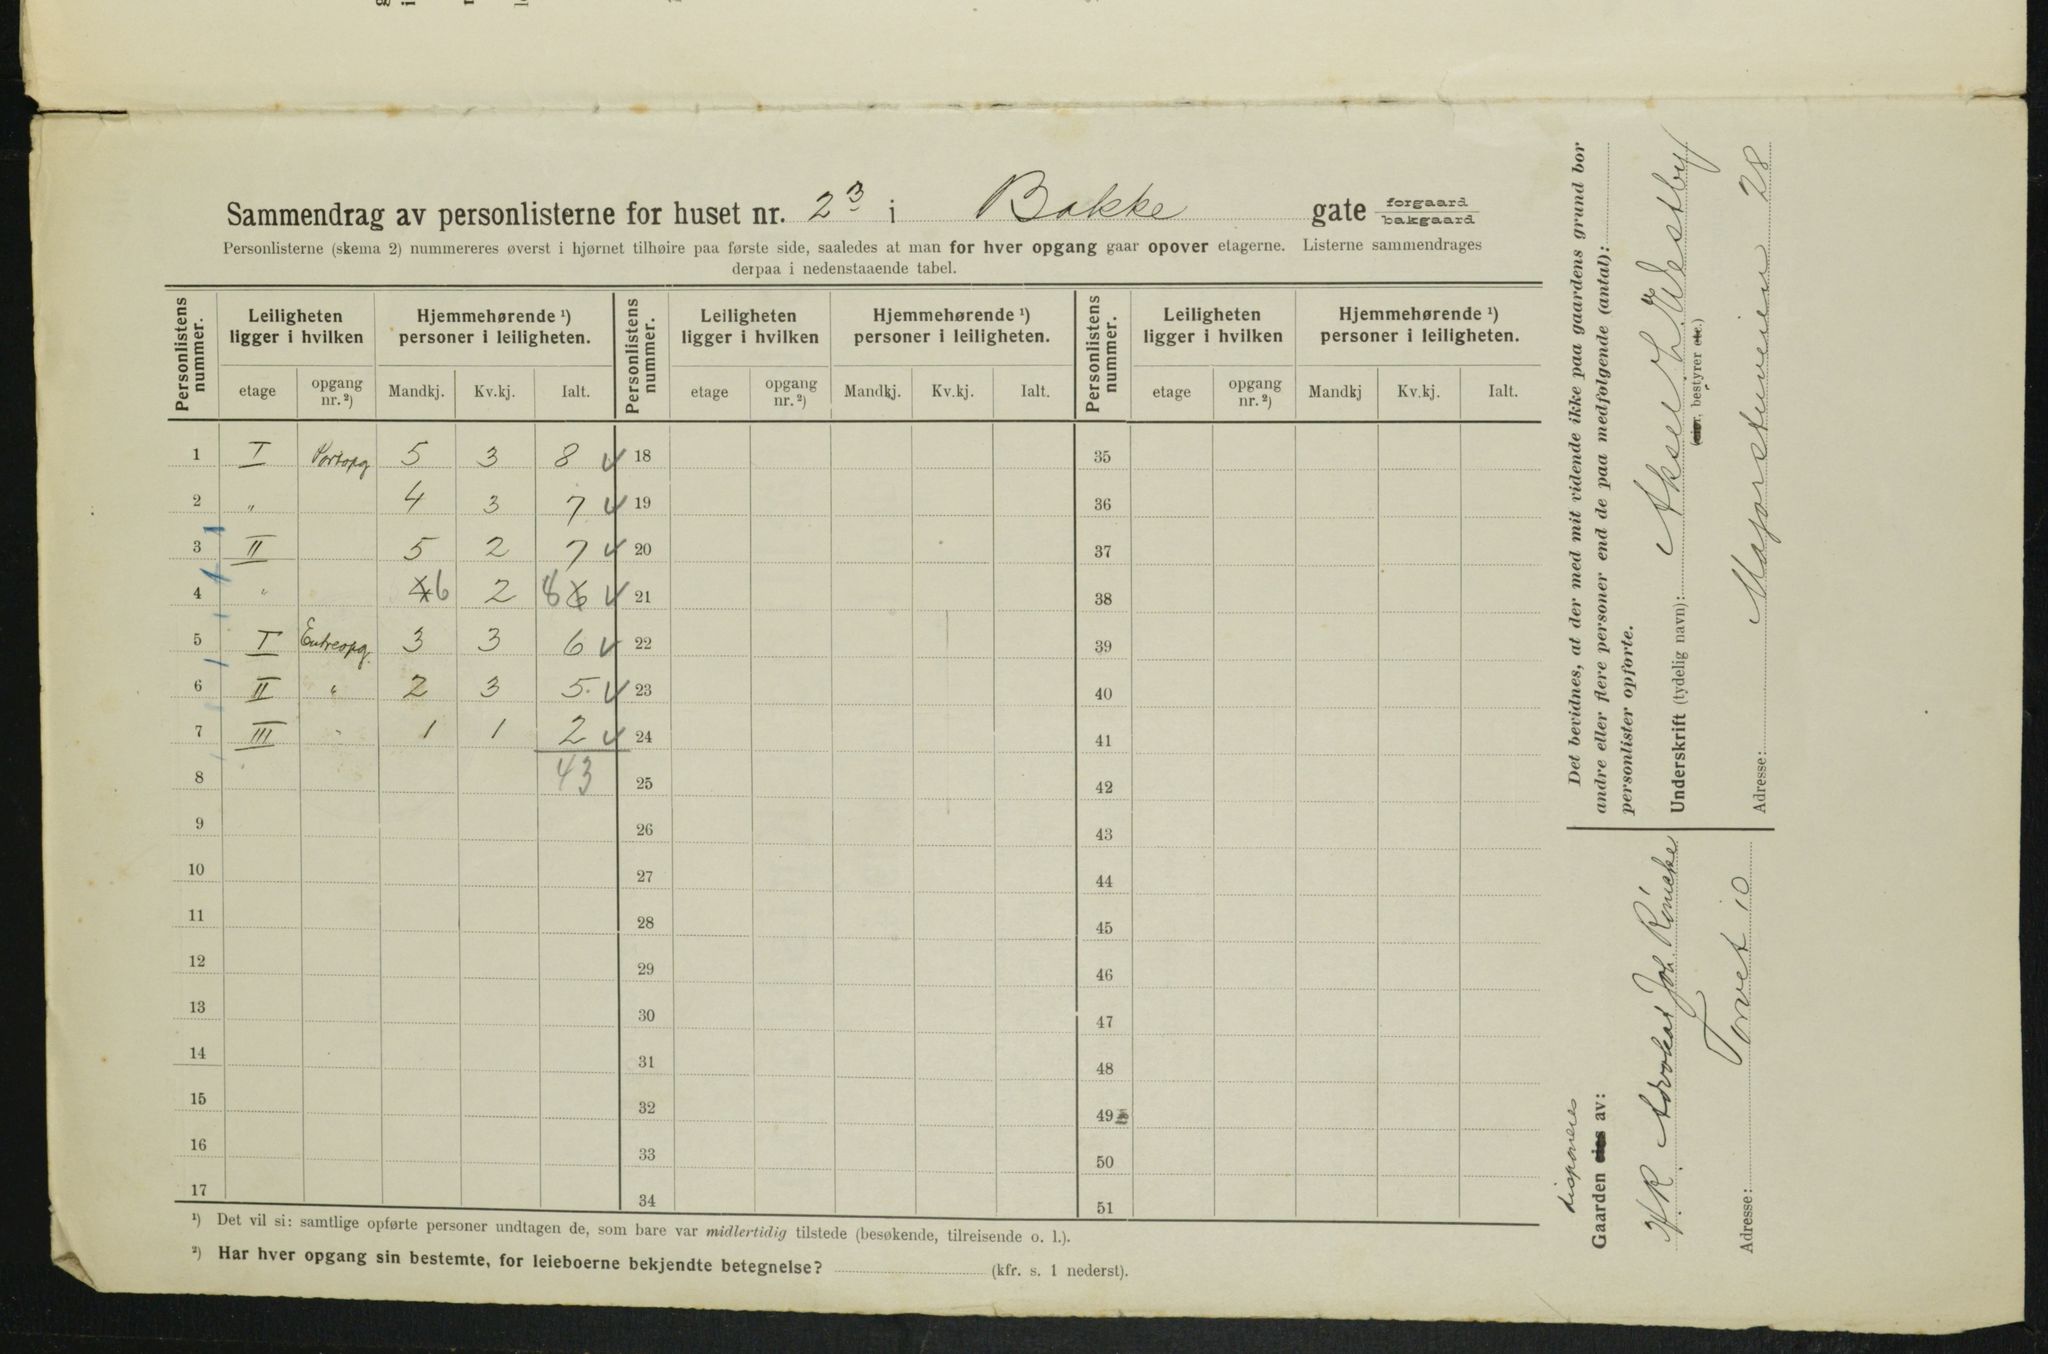 Sammendrag av personlisterne for huset nr. 23 i Bakke gate forgaard bakgaard
Personlisterne (skema 2) nummereres øverst i hjørnet tilhøire paa første side, saaledes at man for hver opgang gaar opover etagerne. Listerne sammendrages
derpaa i nedenstaaende tabel.
Personlistens nummer. Leiligheten ligger i hvilken Hjemmehørende ¹) personer i leiligheten. Personlistens nummer. Leiligheten ligger i hvilken Hjemmehørende ¹) personer i leiligheten. Personlistens nummer. Leiligheten ligger i hvilken Hjemmehørende ¹) personer i leiligheten.
etage opgang nr. ²) Mandkj. Kv.kj. Ialt. etage opgang nr. ²) Mandkj. Kv.kj. Ialt. etage opgang nr. ²) Mandkj Kv.kj. Ialt.
1 I Portopg 5 3 8 18 35
2 " 4 3 7 19 36
3 II 5 2 7 20 37
4 " 6 2 8 6 21 38
5 I Entreopg. 3 3 6 22 39
6 II " 2 3 5. 23 40
7 III " 1 1 2 24 41
8 43 25 42
9 26 43
10 27 44
11 28 45
12 29 46
13 30 47
14 31 48
15 32 49
16 33 50
17 34 51
¹) Det vil si: samtlige opførte personer undtagen de, som bare var midlertidig tilstede (besøkende, tilreisende o. l.).
²) Har hver opgang sin bestemte, for leieboerne bekjendte betegnelse? (kfr. s. 1 nederst).
Det bevidnes, at der med mit vidende ikke paa gaardens grund bor
andre eller flere personer end de paa medfølgende (antal):
personlister opførte.
Underskrift (tydelig navn): Aksel Th. Westby
(eier, bestyrer etc.)
Adresse: Majorstuveien 28
disponeres
Gaarden eies av:
H.R. Advokat Joh. Róncke
Adresse: Torvet 10